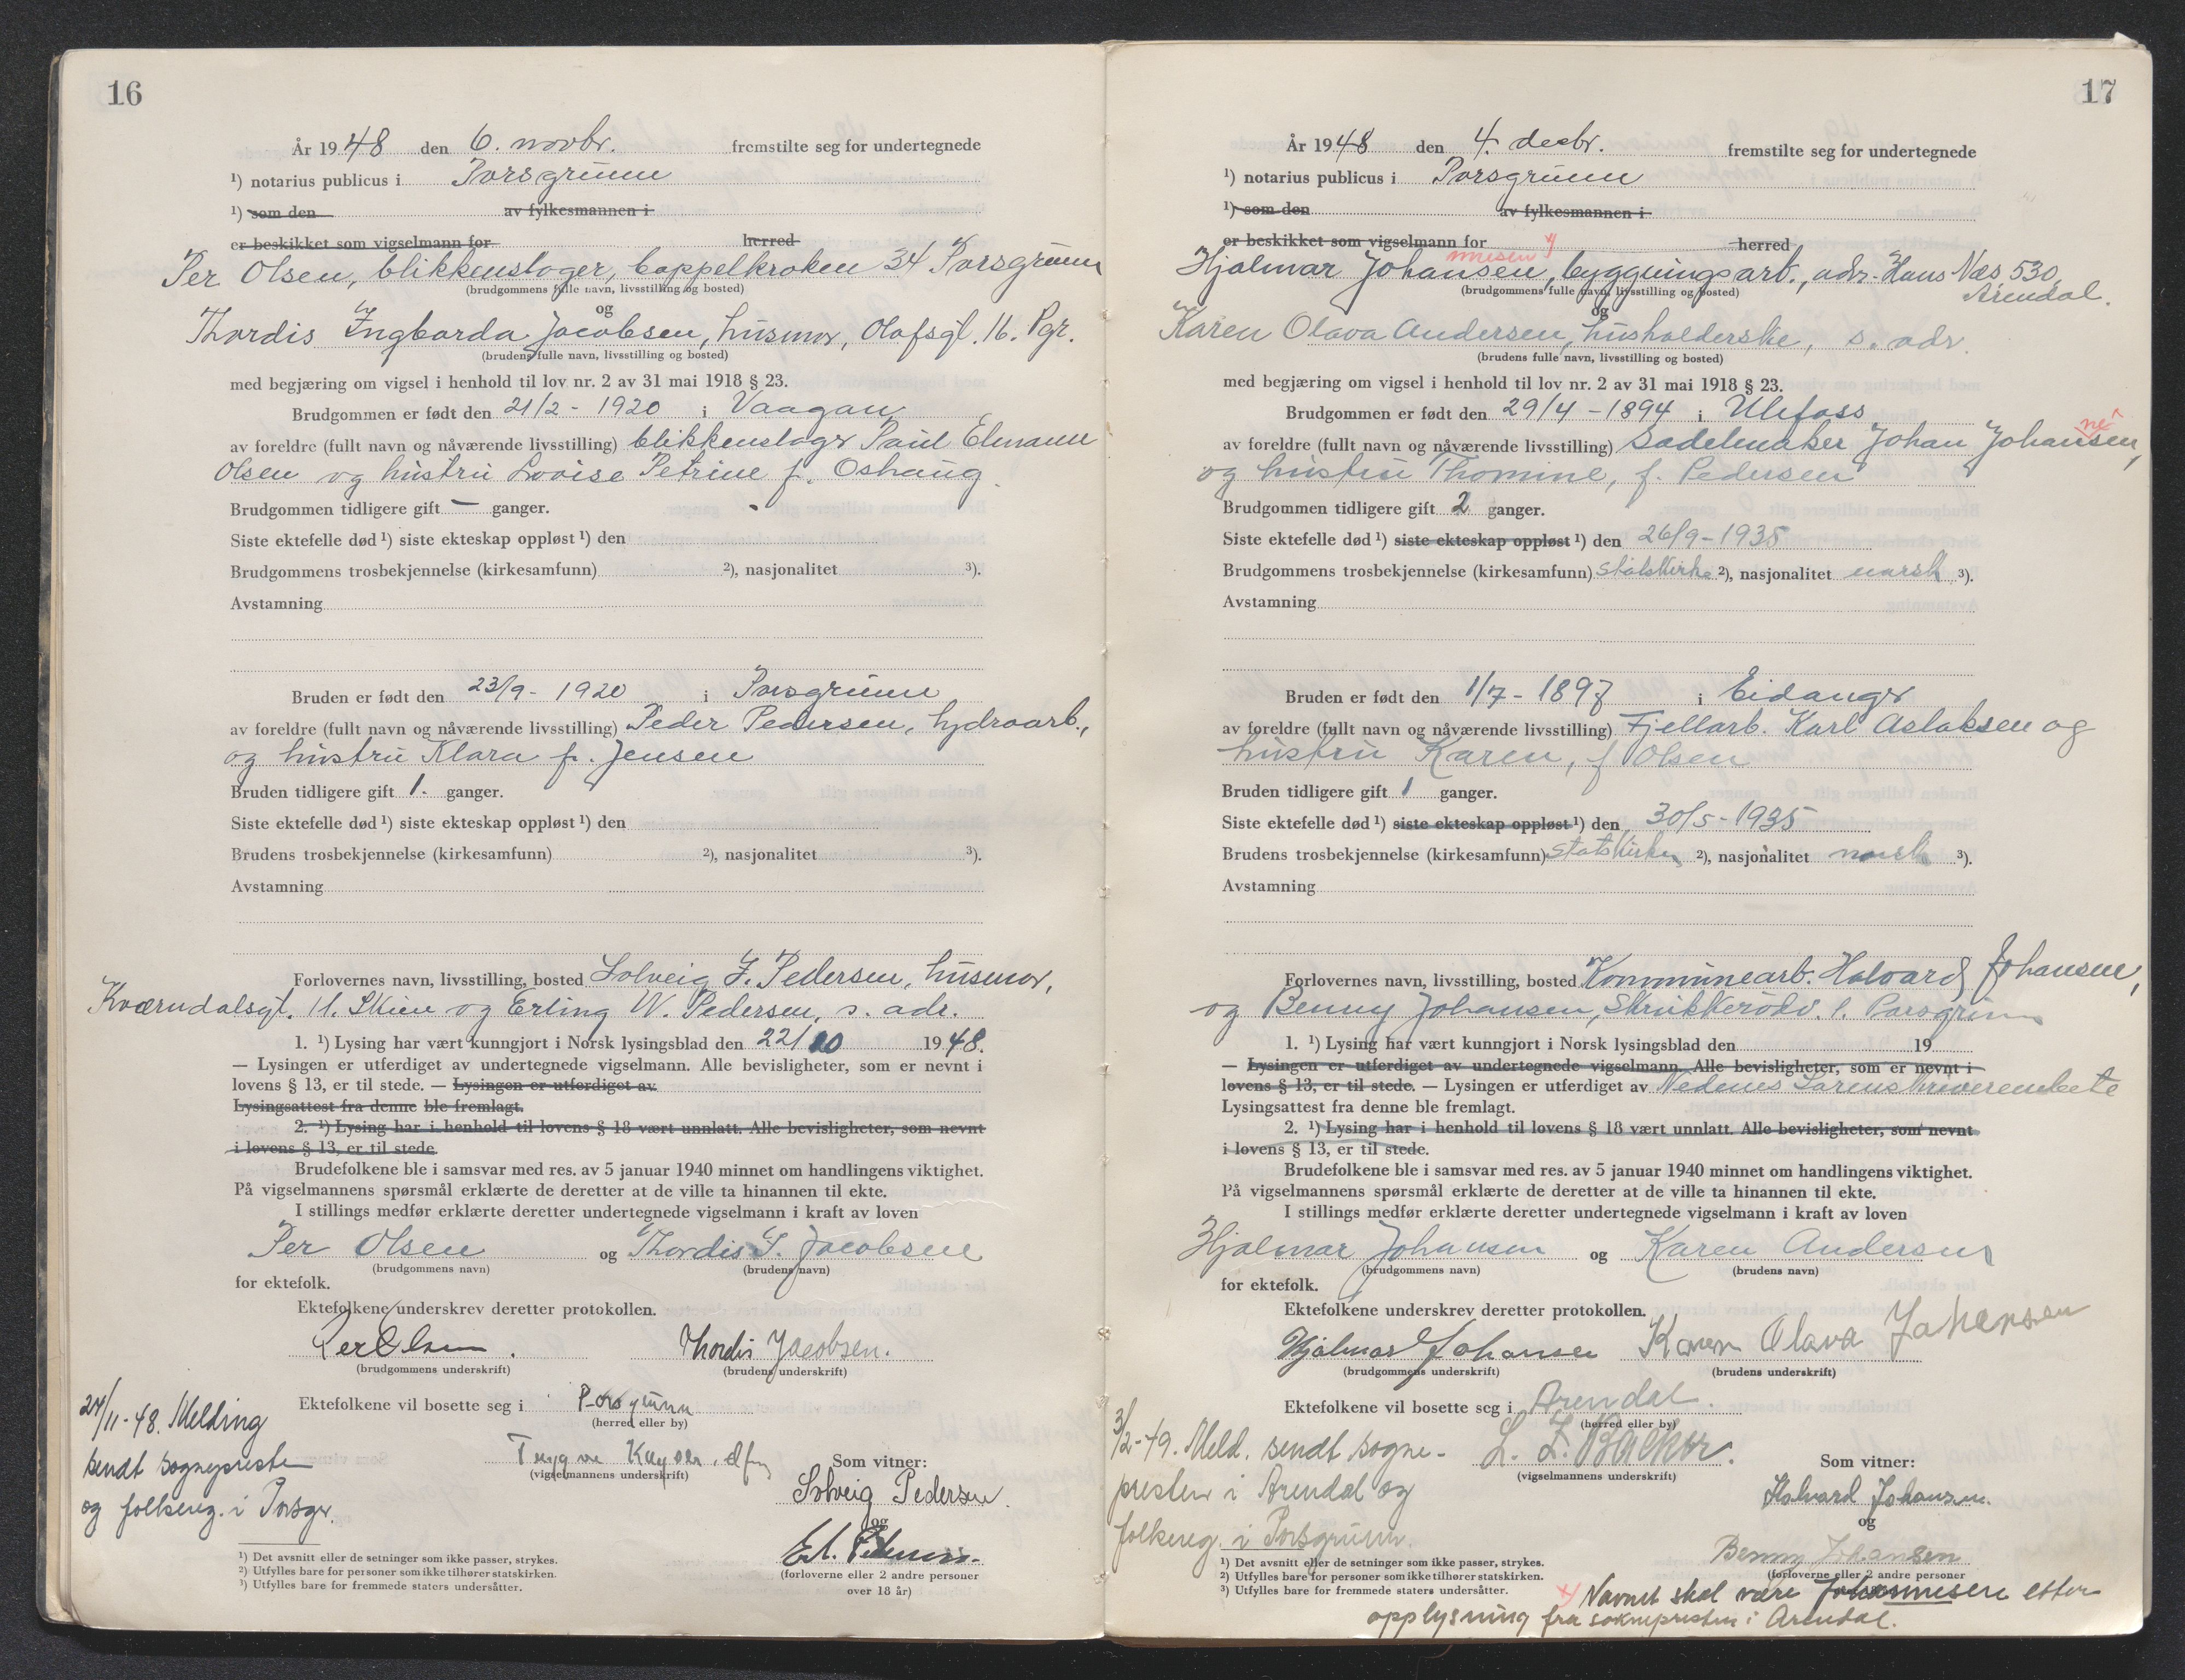 16
År 1948 den 6. novbr. fremstilte seg for undertegnede
¹) notarius publicus i Porsgrunn
¹) som den av fylkesmannen i
er beskikket som vigselmann for herred
Per Olsen, blikkenslager, Coppelkroken 34 Porsgrunn
(brudgommens fulle navn, livsstilling og bosted)
og
Thordis Ingborda Jacobsen, husmor, Olafsgt. 16. Pgr.
(brudens fulle navn, livsstilling og bosted)
med begjæring om vigsel i henhold til lov nr. 2 av 31 mai 1918 § 23.
Brudgommen er født den 21/2 - 1920 i Vaagan
av foreldre (fullt navn og nåværende livsstilling) blikkenslager Paul Elmann
Olsen og hustru Lovise Petrine f. Oshaug
Brudgommen tidligere gift — ganger.
Siste ektefelle død ¹) siste ekteskap oppløst ¹) den
Brudgommens trosbekjennelse (kirkesamfunn) ²), nasjonalitet ³).
Avstamning
Bruden er født den 23/9 - 1920 i Porsgrunn
av foreldre (fullt navn og nåværende livsstilling) Peder Pedersen, hydroarb.,
og hustru Klara f. Jensen
Bruden tidligere gift 1. ganger.
Siste ektefelle død ¹) siste ekteskap oppløst ¹) den
Brudens trosbekjennelse (kirkesamfunn) ²), nasjonalitet ³).
Avstamning
Forlovernes navn, livsstilling, bosted Solveig J. Pedersen, husmor,
Kværndalsgt. 11. Skien og Erling W. Pedersen, s. adr.
1. ¹) Lysing har vært kunngjort i Norsk lysingsblad den 22/10 1948.
— Lysingen er utferdiget av undertegnede vigselmann. Alle bevisligheter, som er nevnt i
lovens § 13, er til stede. — Lysingen er utferdiget av
Lysingsattest fra denne ble fremlagt.
2. ¹) Lysing har i henhold til lovens § 18 vært unnlatt. Alle bevisligheter, som nevnt
i lovens § 13, er til stede
Brudefolkene ble i samsvar med res. av 5 januar 1940 minnet om handlingens viktighet.
På vigselmannens spørsmål erklærte de deretter at de ville ta hinannen til ekte.
I stillings medfør erklærte deretter undertegnede vigselmann i kraft av loven
Per Olsen og Thordis I. Jacobsen
(brudgommens navn) (brudens navn)
for ektefolk.
Ektefolkene underskrev deretter protokollen.
Per Olsen. Thordis Jacobsen.
(brudgommens underskrift) (brudens underskrift)
Ektefolkene vil bosette seg i Porsgrunn
(herred eller by)
24/11-48. Melding
sendt sogneprest
og folkereg. i Porsgr.
Trygve
(vigselmannens underskrift)
Som vitner:
Solveig Pedersen.
og
Erl. Pedersen.
(forloverne eller 2 andre personer
over 18 år)
¹) Det avsnitt eller de setninger som ikke passer, strykes.
²) Utfylles bare for personer som ikke tilhører statskirken.
³) Utfylles bare for fremmede staters undersåtter.
17
År 1948 den 4. decbr. fremstilte seg for undertegnede
¹) notarius publicus i Porsgrunn
¹) som den av fylkesmannen i
er beskikket som vigselmann for herred
Hjalmar Johansen, bygningsarb., adr. Hans Næs, 530,
Arendal.
(brudgommens fulle navn, livsstilling og bosted)
og
Karen Olava Andersen, husholderske, s. adr.
(brudens fulle navn, livsstilling og bosted)
med begjæring om vigsel i henhold til lov nr. 2 av 31 mai 1918 § 23.
Brudgommen er født den 29/4 - 1894 i Ulefoss
av foreldre (fullt navn og nåværende livsstilling) Sadelmaker Johan Johansen,
og hustru Thomine, f. Pedersen
Brudgommen tidligere gift 2 ganger.
Siste ektefelle død ¹) siste ekteskap oppløst ¹) den 26/9 - 1935
Brudgommens trosbekjennelse (kirkesamfunn) Statskirke ²), nasjonalitet norsk ³).
Avstamning
Bruden er født den 1/7 - 1897 i Eidanger
av foreldre (fullt navn og nåværende livsstilling) Fjellarb. Karl Aslaksen og
hustru Karen, f. Olsen
Bruden tidligere gift 1 ganger.
Siste ektefelle død ¹) siste ekteskap oppløst ¹) den 30/5 - 1935
Brudens trosbekjennelse (kirkesamfunn) Statskirken ²), nasjonalitet norsk ³).
Avstamning
Forlovernes navn, livsstilling, bosted Kommunearb. Halvard Johansen,
og Benny Johansen, Skrukkerødv. 1. Porsgrunn
1. ¹) Lysing har vært kunngjort i Norsk lysingsblad den 19
— Lysingen er utferdiget av undertegnede vigselmann. Alle bevisligheter, som er nevnt i
lovens § 13, er til stede. — Lysingen er utferdiget av Nedenes Sorenskriverembete
Lysingsattest fra denne ble fremlagt.
2. ¹) Lysing har i henhold til lovens § 18 vært unnlatt. Alle bevisligheter, som nevnt
i lovens § 13, er til stede.
Brudefolkene ble i samsvar med res. av 5 januar 1940 minnet om handlingens viktighet.
På vigselmannens spørsmål erklærte de deretter at de ville ta hinannen til ekte.
I stillings medfør erklærte deretter undertegnede vigselmann i kraft av loven
Hjalmar Johansen og Karen Andersen
(brudgommens navn) (brudens navn)
for ektefolk.
Ektefolkene underskrev deretter protokollen.
Hjalmar Johansen Karen Olava Johansen
(brudgommens underskrift) (brudens underskrift)
Ektefolkene vil bosette seg i Arendal.
(herred eller by)
3/2-49. Meld. sendt sogne-
presten i Arendal og
folkereg. i Porsgrunn.
(vigselmannens underskrift)
Som vitner:
Halvard Johansen.
og
Benny Johansen
(forloverne eller 2 andre personer
¹) Det avsnitt eller de setninger som ikke passer, strykes.
²) Utfylles bare for personer som ikke tilhører statskirken.
³) Utfylles bare for fremmede staters undersåtter.
x) Navnet skal være Johannesen etter
opplysning fra sokneprsten i Arendal.